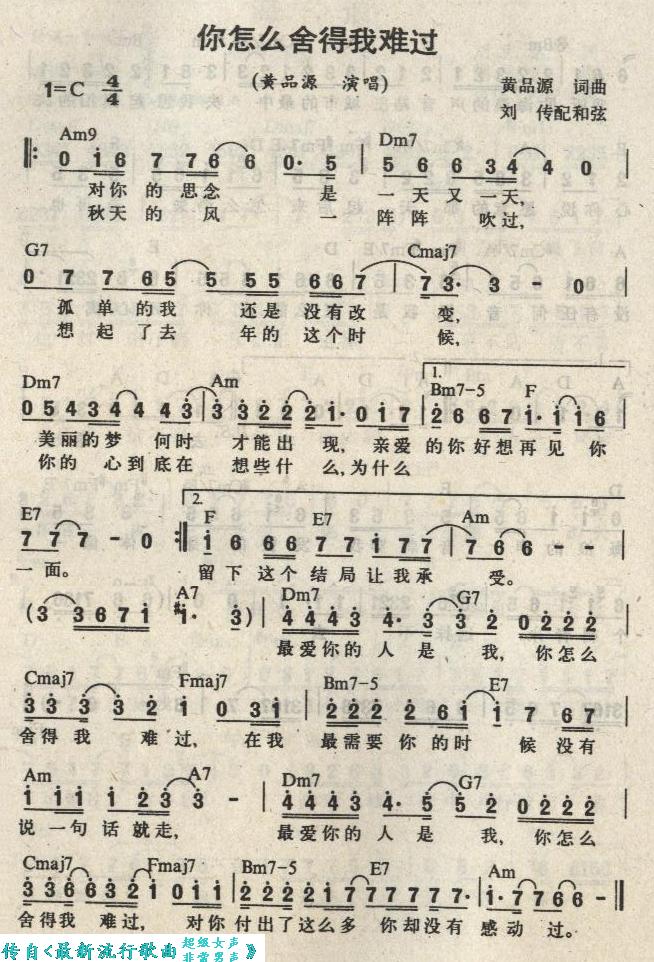 你怎么舍得我难过
(黄品源 演唱)
1=C 4/4
黄品源 词曲
刘 传配和弦
Am9 Dm7
0 i 6 7 7 6 6 0· 5 | 5 6 6 3 4 4 0 |
对你 的 思念 是 一 天 又 一 天,
秋天 的 风 一 阵 阵 吹过,
G7 Cmaj7
0 7 7 6 5 5 5 5 6 6 7 | 7 3· 3 - 0 |
孤 单 的我 还是 没有改 变,
想 起 了去 年的 这个时 候,
Dm7 Am 1. Bm7-5 F
0 5 4 3 4 4 4 3 | 3 3 2 2 2 i· 0 i 7 | 2 6 6 7 i· i i 6
美丽的梦 何时 才能出 现, 亲爱 的你好想再见 你
你的 心到底在 想些什 么,为什么
E7 2. F E7 Am
7 7 7 - 0 :|| i 6 6 6 7 7 i 7 7 | 7 6 6 - - |
一面。 留下 这个 结局让我承 受。
A7 Dm7 G7
(3 3 6 7 i #i· 3) | 4 4 4 3 4· 3 3 2 0 2 2 2 |
最爱你的 人 是 我, 你怎么
Cmaj7 Fmaj7 Bm7-5 E7
3 3 3 3 2 i 0 3 i | 2 2 2 2 6 i i 7 6 7 |
舍得我 难过, 在我 最需要 你的时 候 没有
Am A7 Dm7 G7
i i i i 2 3 3 - | 4 4 4 3 4· 5 5 2 0 2 2 2 |
说 一句 话就走, 最爱你的 人 是 我, 你怎么
Cmaj7 Fmaj7 Bm7-5 E7 Am
3 3 6 6 3 2 i 0 i i | 2 2 2 2 i 7 7 7 7 7 7· | i· 7 7 6 6 - ||
舍得我 难过, 对你 付出了这么多 你却没有 感动 过。
传自<最新流行歌曲 超级女声 非常男声 》